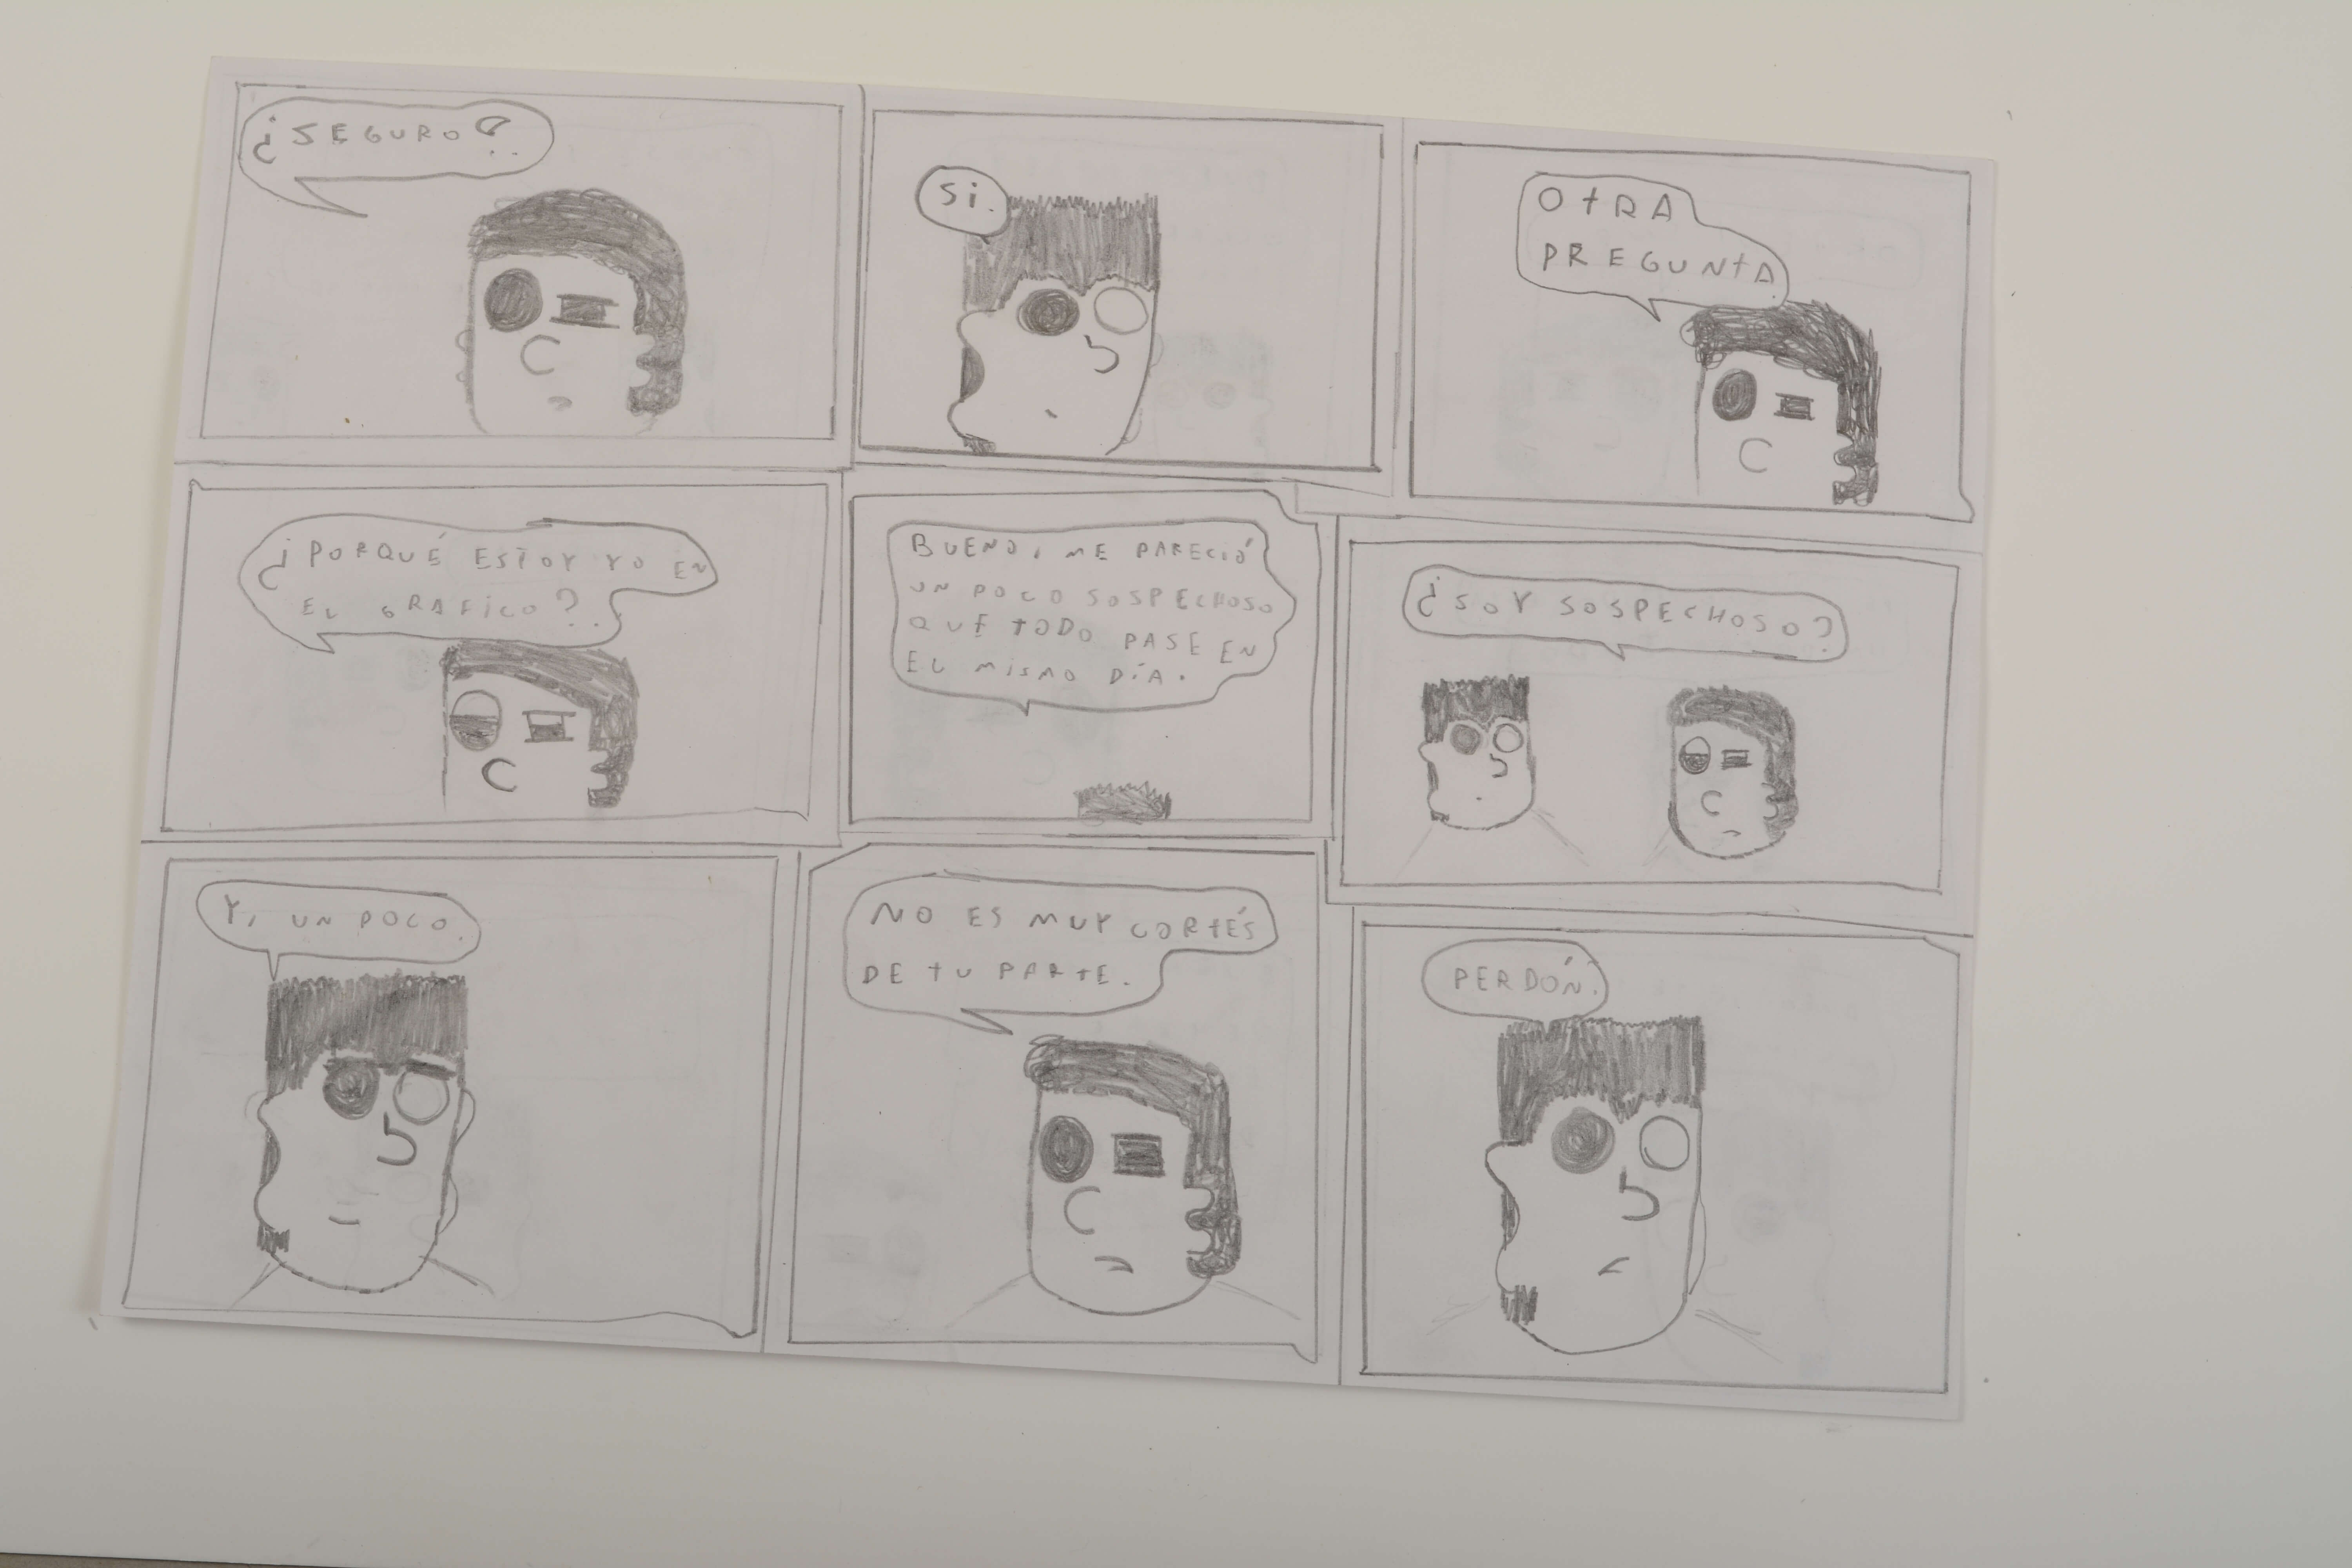 ¿SEGURO?
Si.
OtRA
PREGUNtA
¿PORQUÉ ESTOY YO EN
EL GRAFiCO?
BUENO, ME PARECIÓ
UN POCO SOSPECHOSO
QUE TODO PASE EN
EL MiSMO DÍA.
¿SOY SOSPECHOSO?
Y, UN POCO.
NO ES MUY CORtÉS
DE tU PARtE.
PERDÓN.